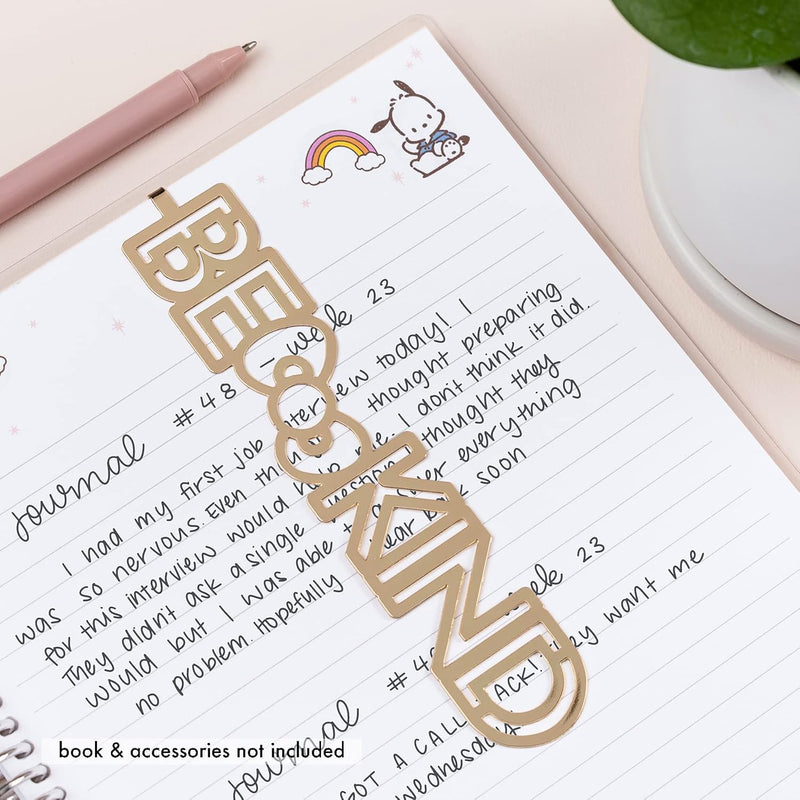 BE KIND
Journal #48 - week 23
I had my first job interview today! I
was so nervous. Even though I thought preparing
for this interview would help me, I don't think it did.
They didn't ask a single question I thought they
would but I was able to answer everything
no problem. Hopefully I hear back soon
Journal #4 week 23
GOT A CALL BACK! They want me
Wednesday
book & accessories not included